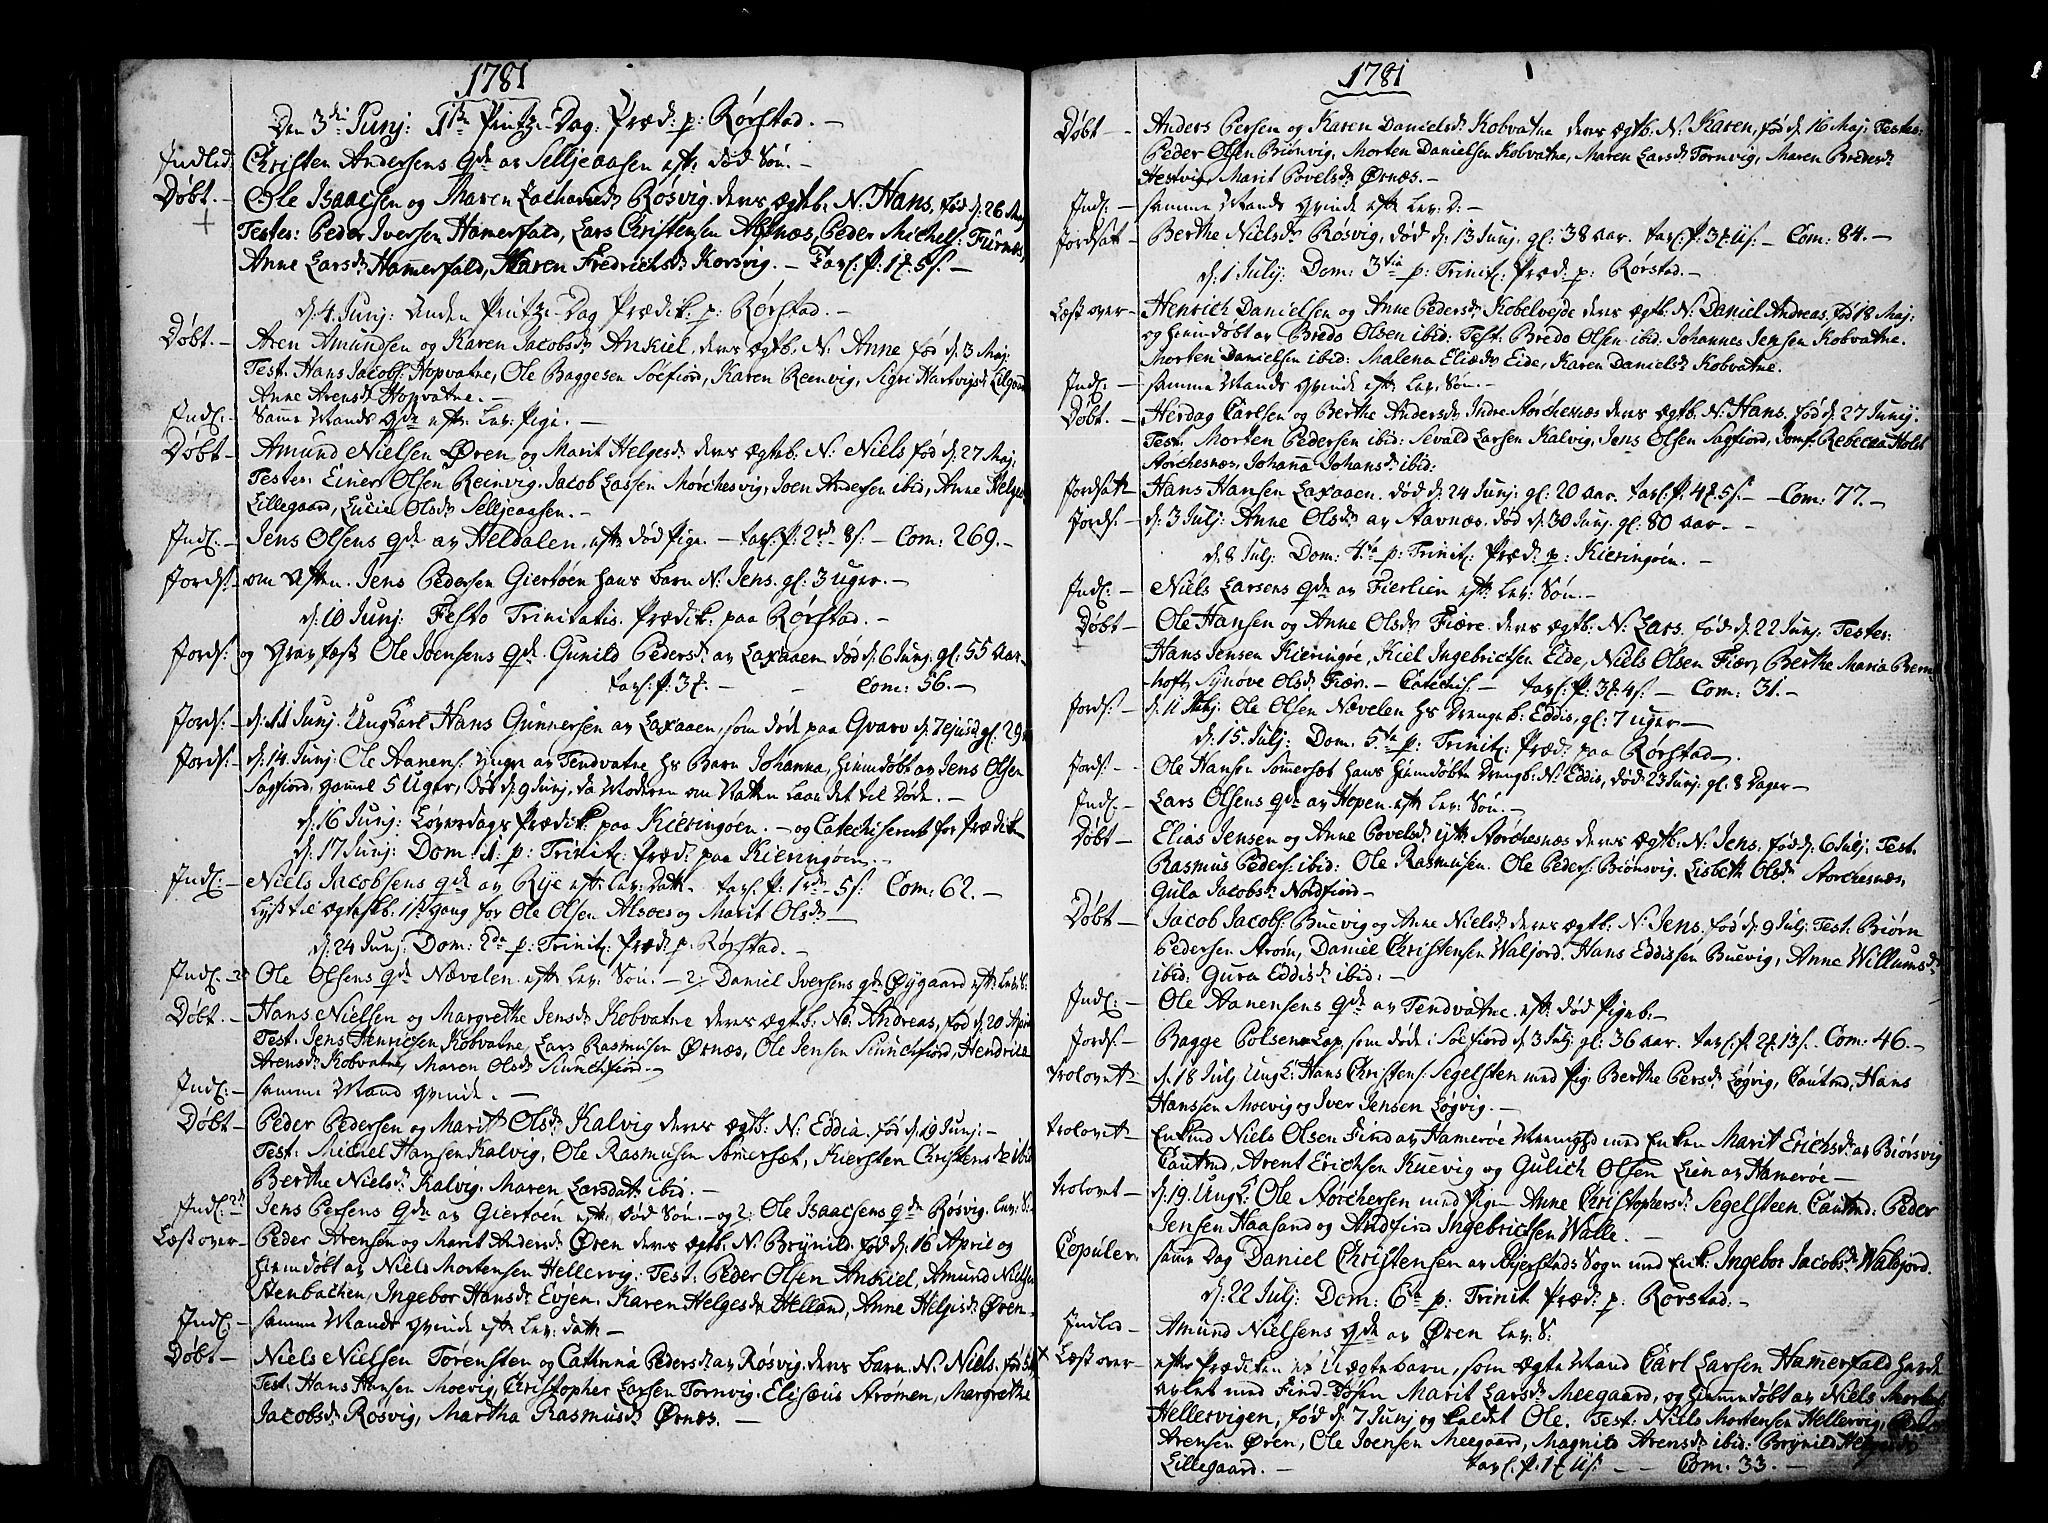 1781
Den 3die Junj: 1te Pintze-Dag: Præd: p: Rørstad. -
Indled. Christen Andersens qde av Selljeaasen eft: død Søn. -
Døbt. - Ole Isaacsen og Maren Zachariæd: Røsvig. deres ægtb: N: Hans, fød d: 26 Maj
+ Testes: Peder Iversen Hamerfald, Lars Christensen Agnæs, Peder Michels: Furnæs,
Anne Larsd: Hamerfald, Karen Fredrichsd: Korsvig. -
d: 4 Junj: Anden Pintze-Dag Prædik: p: Rørstad. -
Døbt. - Aren Amundsen og Karen Jacobsd: Ankiel. deres ægtb: N: Anne fød d: 3 Maj:
Test: Hans Jacobs: Hopvatne, Ole Baggesen Soefiord, Karen Reenvig, Sigri Hartvigsd:
Anne Arensd: Hopvatne. -
Indl. - Samme Mands qde eft: lev: Pige. -
Døbt - Amund Nielsen Øren og Marit Helgesd: deres ægtb: N: Niels fød d: 27 Maj:
Testes: Einer Olsen Reinvig. Jacob Lassen Mørchesvig, Joen Andersen ibid, Anne Helges
Lillegaard, Lucie Olsd: Selljeaasen. -
Indl. - Jens Olsens qde av Heldalen, eft: død Pige. - Com: 269. -
Jords: - om Aften. Jens Pedersen Giertøen hans barn N: Jens. gl: 3 uger. -
d: 10 Junj: Festo Trinitatis. Prædik: paa Rørstad. -
Jords: og Gravfæst Ole Joensens qde Gunild Pedersd: av Laxaaen død d: 6 Junj. gl: 55 aar
Com: 56. -
Jords: - d: 11 Junj. Ungkarl Hans Gunnersen av Laxaaen, som døde paa Gvarv d: 7 ejusd gl. 29
Jords: - d: 14 Junj: Ole Hanens: yngre av Tendvatne hs Barn Johanna, hiemdøbt av Jens Olsen
Sagfiord, gamel 5 Uger, død d: 9 Junj, da Moderen om Natten laae det til Døde. -
d: 16 Junj: Løverdags Prædik: paa Kieringøen. - og Catechiseret for Prædik
d: 17 Junj: Dom: 1: p: Trinit: Præd: paa Kieringøen. -
Indl: - Niels Jacobsens qde av Rye eft: lev: Datt. Com: 62. -
Lyst til ægteskb: 1ste gang for Ole Olsen Alsoes og Marit Olsd: -
d: 24 Junj Dom: 2da p: Trinit: Præd: p: Rørstad. -
Indl. Ole Olsens qde Nævelen eft: lev: Søn. - 2/ Daniel Iversens qde Øygaard eft: lev: S:
Døbt. - Hans Nielsen og Margrethe Jensd: Kobvatne deres ægtb: N: Andreas, fød d: 20 April
Test: Jens Henricsen Kobvatne, Lars Rasmusen Ørnæs, Ole Jensen Siunchfiord, Hendrica
Arensd: Kobvatne, Maren Olsd: Siunchfiord. -
Indl: - samme Mand qvinde. -
Døbt - Peder Pedersen og Marit Olsd: Kalvig deres ægtb: N: Eddia. fød d: 19 Junj: -
Test: Michel Hansen Kalvig, Ole Rasmusen Sommerset, Kiersten Christensd: ibid
Berthe Nielsd: Kalvig. Maren Larsdatt: ibid. -
Indl: Jens Persens qde av Giertøen eft: død Søn. - og 2: Ole Isaacsens qde Røsvig. lev: S:
Læst over - Peder Arensen og Marit Andersd: Øren deres ægtb: N: Brynild. fød d: 16 April og
hiemdøbt av Niels Mortensen Hellervig: Test: Peder Olsen Ankiel, Amund Nielsen
Stenbachen, Ingebor Hansd: Evjen. Karen Helgesd: Helland, Anne Helgesd: Øren -
Indl: - samme Mands qvinde eft: lev: datt -
Døbt - Niels Nielsen Torensten og Cathrina Pedersd: av Røsvig. deres barn N: Niels. fød
Test: Hans Hansen Moevig, Christopher Larsen Tornvig. Elisæus Strømen, Margrethe
Jacobsd: Røsvig, Martha Rasmusd: Ørnæs. -
1781
Døbt - Anders Persen og Karen Danielsd: Kobvatne deres ægtb: N: Karen, fød d: 16 Maj: Testes:
Peder Olsen Biønvig, Morten Danielsen Kobvatne, Maren Larsd: Tornvig, Maren Bredesd:
Hestvig, Marit Povelsd: Ørnæs. -
Indl: - samme Mands qvinde eft: lev: D: -
Jordsat - Berthe Nielsd: Røsvig, død d: 13 Junj, gl: 38 aar. Com: 84. -
d: 1 Julj: Dom: 3tia p: Trinit: Præd: p: Rørstad. -
Læst over - Henrich Danielsen og Anne Pedersd: Kobelvejde deres ægtb: N: Daniel Andreas, fød 18 Maj:
og hiemdøbt av Bredo Olsen ibid: Test: Bredo Olsen ibid: Johannes Jensen Kobvatne.
Morten Danielsen ibid: Malena Eliæd: Eide, Karen Danielsd: Kobvatne.
Indl: - samme Mands qvinde eft: lev: Søn. -
Døbt. - Herdag Carlsen og Berthe Andersd: Indre Storchesnæs deres ægtb: N: Hans. fød d: 27 Junj:
Test: Morten Pedersen ibid: Sevald Larsen Kalvig, Jens Olsen Sagfiord, Jomf: Rebecca Holst
Storchesnæs, Johanna Johansd: ibid:
Jordsat - Hans Hansen Laxaaen. død d: 24 Junj: gl: 20 aar. Com: 77. -
Jords: - d: 3 Julj: Anne Olsd: av Stavnæs, død d: 30 Junj. gl: 80 aar. -
d: 8 Julj: Dom: 4ta p: Trinit: Præd: p: Kieringøen. -
Indl: - Niels Larsens qde av Fierlien eft: lev: Søn. -
Døbt - Ole Hansen og Anne Olsd: Fiære. deres ægtb: N: Lars. fød d: 22 Junj. Testes:
+ Hans Jensen Kieringøe, Kiel Ingebrictsen Eide, Niels Olsen Fiær, Berthe Maria Bern
hoft, Synøve Olsd: Fiær. - Catechis. - Com: 31. -
Jords: - d: 11 Julj: Ole Olsen Nævelen hs Drengeb: Eddis, gl: 7 uger -
d: 15 Julj: Dom: 5ta p: Trinit: Præd: paa Rørstad. -
Jords: - Ole Hansen Sommerset hans hiemdøbte Drengb: N: Eddis, død 23 Junj: gl: 8 Dager -
Indl: - Lars Olsens qde av Hopen. eft: lev: Søn. -
Døbt - Elias Jensen og Anne Povelsd: ytt: Storchesnæs deres ægtb: N: Jens. fød d: 6 Julj. Test.
Rasmus Peders: ibid: Ole Rasmusen. Ole Peders: Biønsvig. Lisbeth Olsd: Storchesnæs,
Gula Jacobsd: Nordfiord -
Døbt - Jacob Jacobs: Buevig og Anne Nielsd: deres ægtb: N: Jens. fød d: 9 Julj: Test: Biørn
Pedersen Strøm, Daniel Christensen Walsjord. Hans Eddissen Buevig, Anne Willumsd:
ibid: Gura Eddisd: ibid: -
Indl: - Ole Hanensens qde av Tendvatne. eft: død Pigeb: -
Jords. - Bagge Polsen Lap, som døde i Soefiord d: 3 Julj: gl: 36 aar. Com: 46. -
Trolovet - d: 18 Julj Ungk: Hans Christens: Segelsten med Pig: Berthe Persd: Løgvig, Cautnd, Hans
Hanssen Moevig og Iver Jensen Løgvig. -
Trolovet - Enkmd Niels Olsen Find av Hamerøe Menighd med Enken Marit Erichsd: av Biørsvig
Cautnd, Arent Erichsen Kuevig og Gulich Olsen Lien av Hamerøe -
Trolovet - d: 19. Ungk: Ole Storchersen med Pigen Anne Christophersd: Segelsteen. Cautnd: Peder
Jensen Haasand og Andfind Ingebrictsen Walle. -
Copuler: samme Dag Daniel Christensen av Skjerstads Sogn med Enk: Ingebor Jacobsd: Walsjord.
d: 22 Julj: Dom: 6ta p: Trinit. Præd: p: Rørstad: -
Indled - Amund Nielsens qde av Øren lev: S:
× Læst over - efter Prædiken et Uægte barn, som ægte Mand Carl Larsen Hamerfald havde
avlet med Find-Tøsen Marit Larsd: Meegaard, og hiemmedøbt av Niels Mortens:
Hellervigen, fød d: 7 Junj og kaldet Ole. Test: Niels Mortensen Hellervig, Peder
Arensen Øren, Ole Joensen Meegaard, Magnild Arensd: ibid: Brynild Helgesd:
Lillegaard. - Com: 33. -